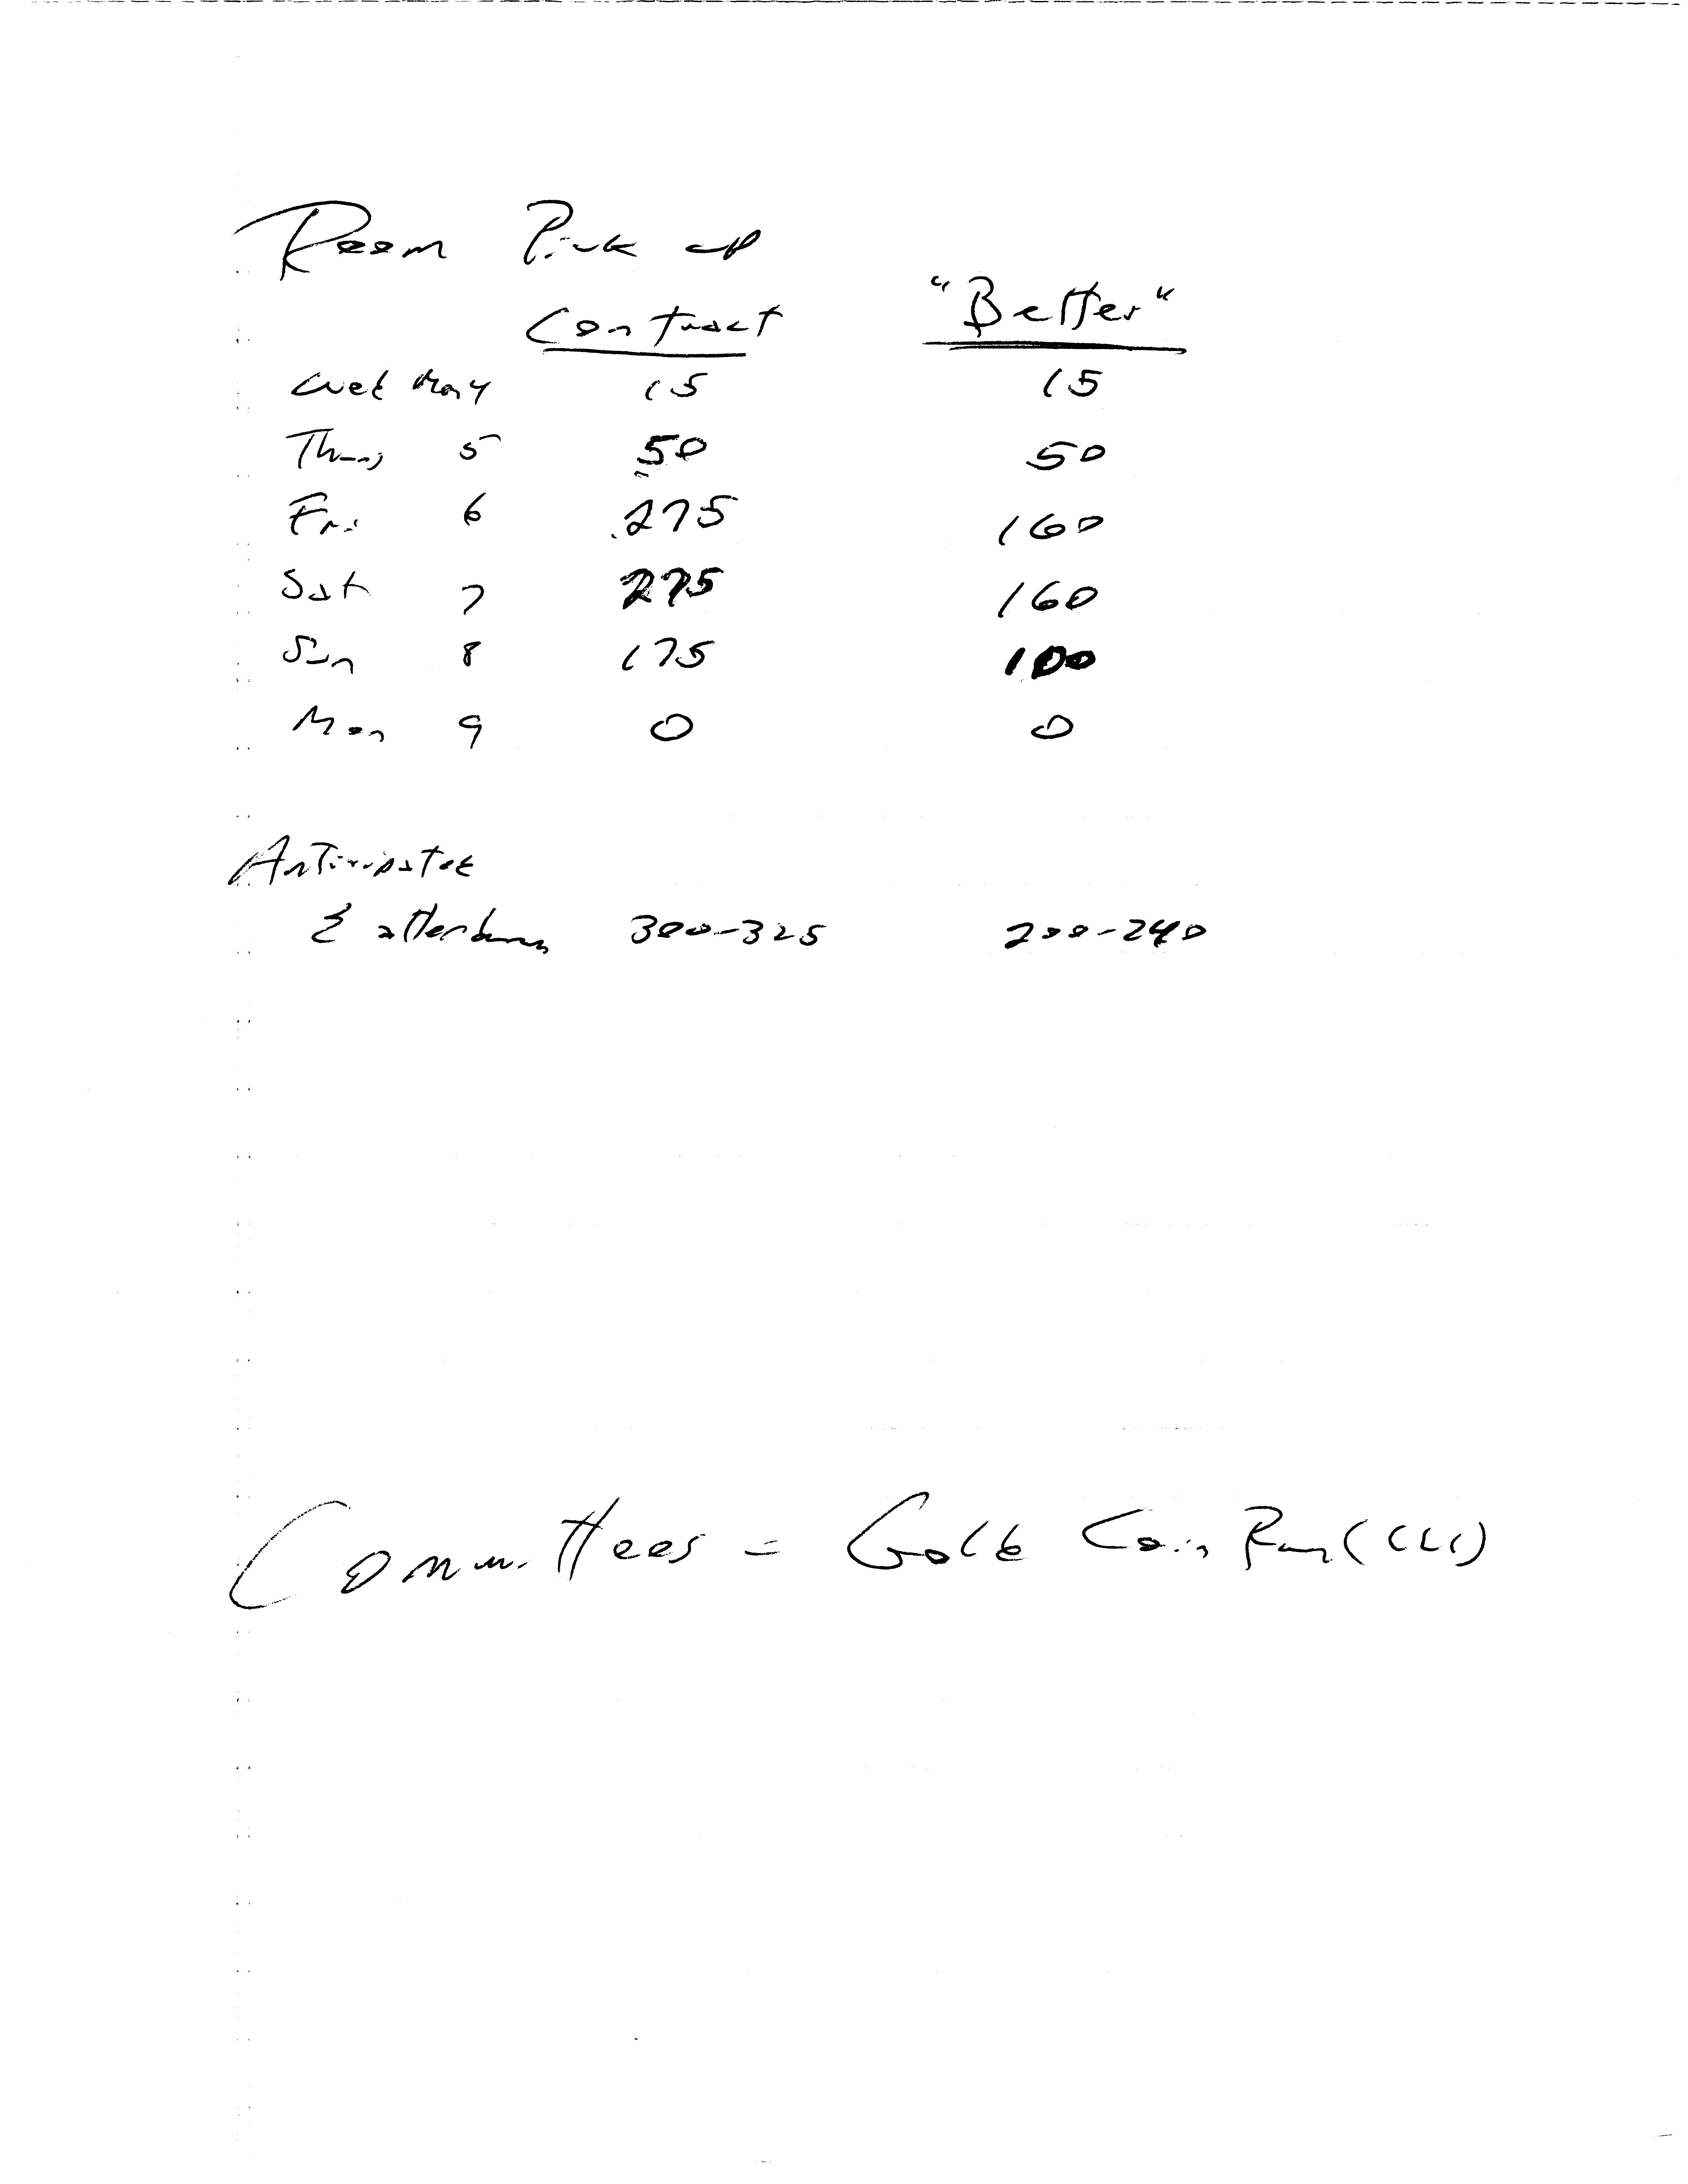 Room Pick up
Contract "Better"
Wed May 4 15 15
Thurs 5 50 50
Fri 6 275 160
Sat 7 275 160
Sun 8 175 100
Mon 9 0 0
Anticipated
Σ attendance 300-325 200-240
Committees = Gold Coin